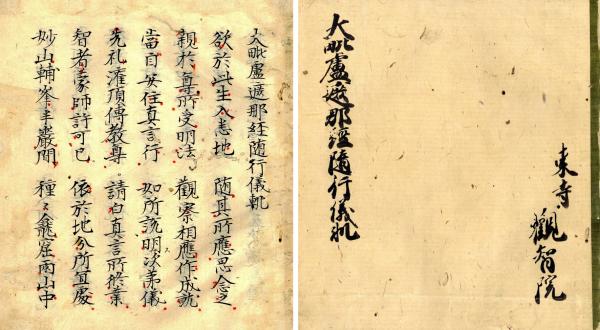 東寺觀智院
大毗盧遮那經隨行儀軌
大毗盧遮那経隨行儀軌
欲於此生入悉地 隨其所應思念之
親於尊所受明法 觀察相應作成就
當自安住真言行 如所說明次第儀
先礼灌頂傳教尊 請白真言所修業
智者蒙師許可已 依於地分所宜處
妙山輔峯半巖間 種〻龕窟兩山中